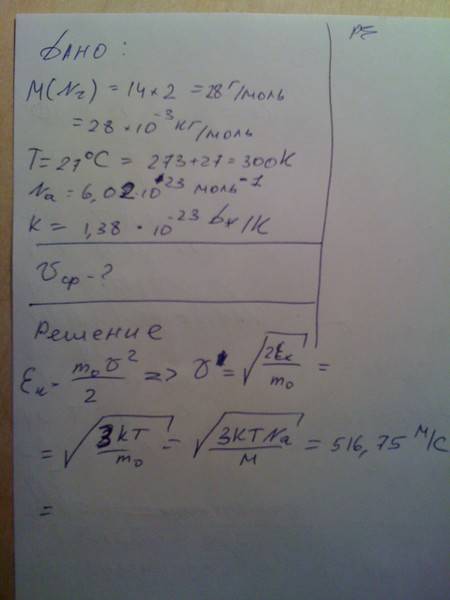 Дано:
РЕ
M(N₂) = 14 × 2 = 28 г/моль
= 28 × 10⁻³ кг/моль
T = 27°C = 273 + 27 = 300K
Nа = 6,02 · 10²³ моль⁻¹
K = 1,38 · 10⁻²³ Дж/K
υср - ?
Решение
Eк = m₀υ²/2 => υ = √(2Eк/m₀) =
= √(3KT/m₀) = √(3KTNа/M) = 516,75 м/с
=